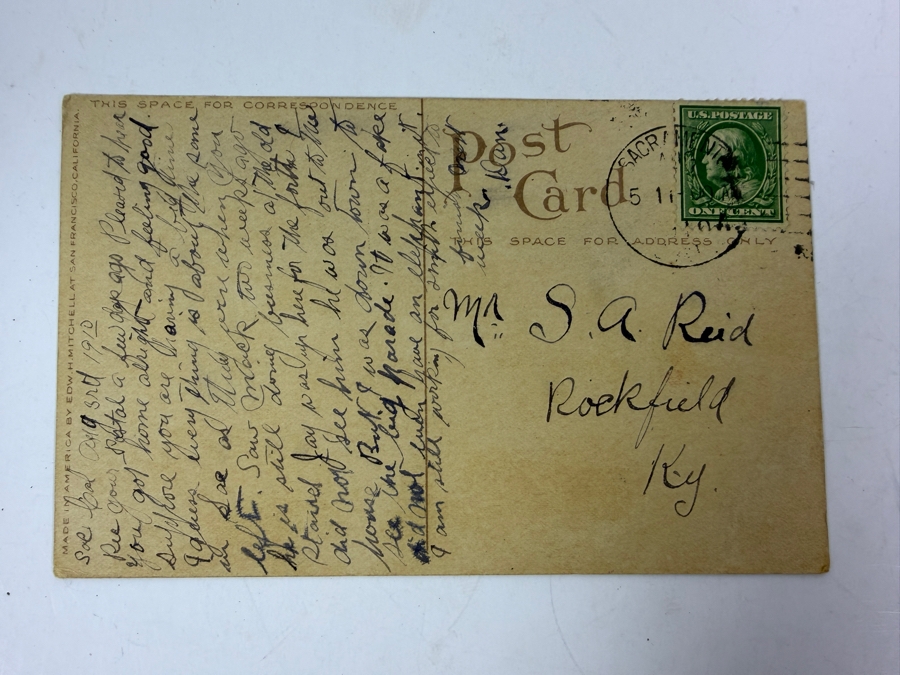 THIS SPACE FOR CORRESPONDENCE
MADE IN AMERICA BY EDW. H. MITCHELL AT SAN FRANCISCO, CALIFORNIA.
Post
Card
THIS SPACE FOR ADDRESS ONLY
SACRAMENTO
5
U.S. POSTAGE
ONE CENT
Mr S. A. Reid
Rockfield
Ky.
Sac. Cal Aug 3rd 1910
Rec your Postal a few days ago Pleased to hear
you got home alright and feeling good.
Suppose you are having a big time
I guess every thing is about the same
in Sac as they were when you
left. Saw Mack two weeks ago
he is still doing business at the old
stand Jay was up here for the forth I
did not see him he was out to the
house But I was down town to
see the big Parade. It was a fake
did not even have an elepphant in it.
I am still working for Smith
family and
Dan